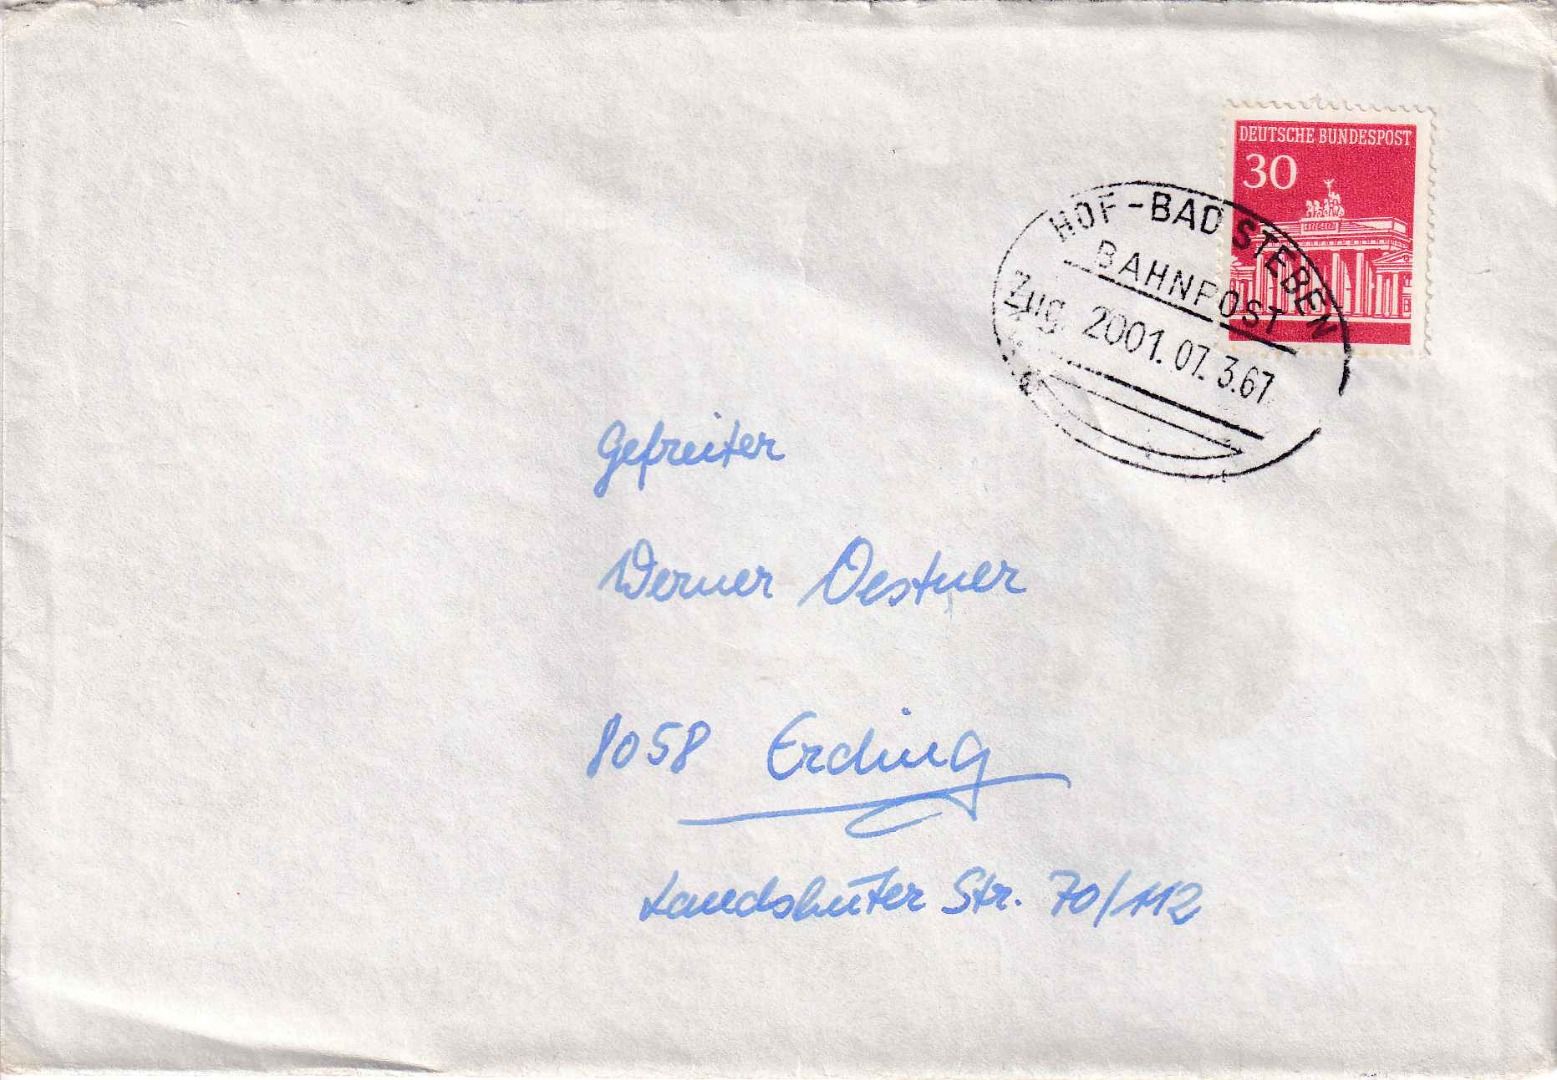 DEUTSCHE BUNDESPOST
30
HOF-BAD STEBEN
BAHNPOST
Zug 2001.07.3.67
Gefreiter
Werner Oestner
8058 Erding
Landshuter Str. 70/112